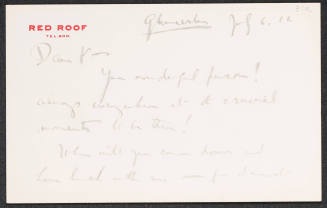 RED ROOF
TEL 2400
Gloucester July 6. 12
Dear
You wonderful person!
always everywhere at the crucial
moments to be there!
When will you come down and
have lunch with me